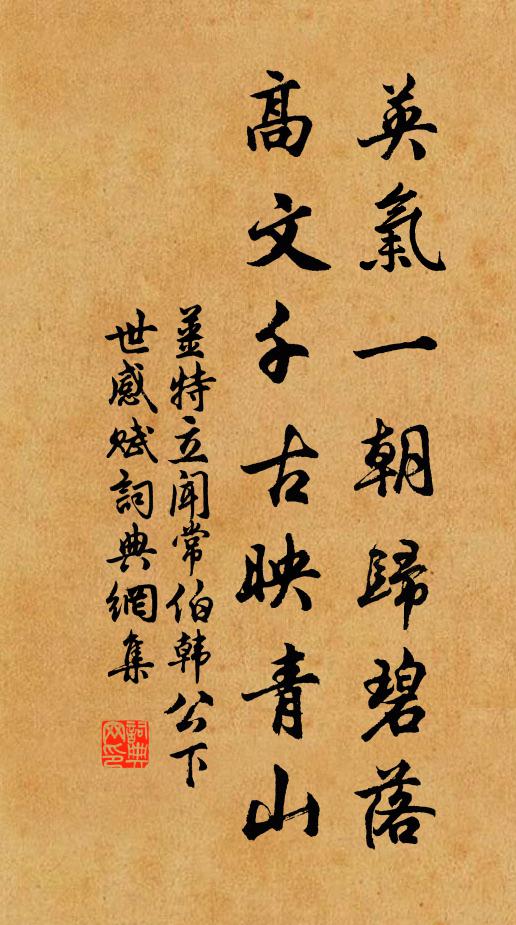 英氣一朝歸碧落
高文千古映青山
薑特立聞常伯韓公下
世感賦詞典網集
詞典网印